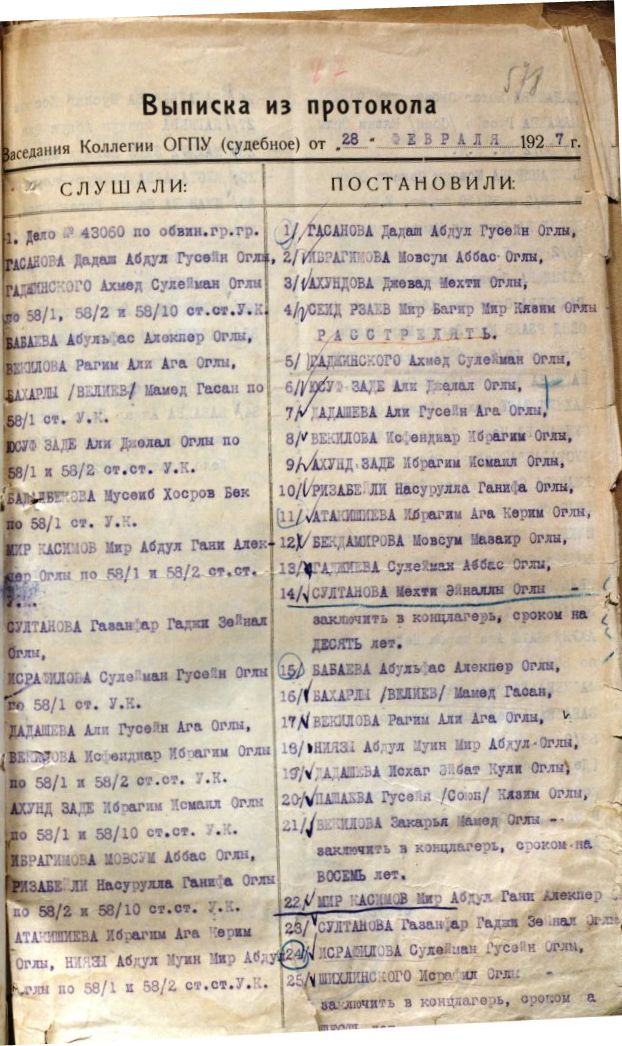 578
Выписка из протокола
Заседания Коллегии ОГПУ (судебное) от "28" ФЕВРАЛЯ 1927 г.
СЛУШАЛИ:
1. Дело № 43060 по обвин.гр.гр.
ГАСАНОВА Дадаш Абдул Гусейн Оглы,
ГАДЖИНСКОГО Ахмед Сулейман Оглы
по 58/1, 58/2 и 58/10 ст.ст.У.К.
БАБАЕВА Абульфас Алекпер Оглы,
ВЕКИЛОВА Рагим Али Ага Оглы,
БАХАРЛЫ /ВЕЛИЕВ/ Мамед Гасан по
58/1 ст. У.К.
ЮСУФ ЗАДЕ Али Джелал Оглы по
58/1 и 58/2 ст.ст. У.К.
БАДАЛБЕКОВА Мусеиб Хосров Бек
по 58/1 ст. У.К.
МИР КАСИМОВ Мир Абдул Гани Алек-
пер Оглы по 58/1 и 58/2 ст.ст.
У.К.
СУЛТАНОВА Газанфар Гаджи Зейнал
Оглы,
ИСРАФИЛОВА Сулейман Гусейн Оглы
по 58/1 ст. У.К.
ДАДАШЕВА Али Гусейн Ага Оглы,
ВЕКИЛОВА Исфендиар Ибрагим Оглы
по 58/1 и 58/2 ст.ст. У.К.
АХУНД ЗАДЕ Ибрагим Исмаил Оглы
по 58/1 и 58/10 ст.ст. У.К.
ИБРАГИМОВА МОВСУМ Аббас Оглы,
РИЗАБЕЙЛИ Насурулла Ганифа Оглы
по 58/2 и 58/10 ст.ст. У.К.
АТАКИШИЕВА Ибрагим Ага Керим
Оглы, НИЯЗЫ Абдул Муин Мир Абдул
Оглы по 58/1 и 58/2 ст.ст.У.К.
ПОСТАНОВИЛИ:
1/ ГАСАНОВА Дадаш Абдул Гусейн Оглы,
2/ ИБРАГИМОВА Мовсум Аббас Оглы,
3/ АХУНДОВА Джевад Мехти Оглы,
4/ СЕИД РЗАЕВ Мир Багир Мир Кязим Оглы
РАССТРЕЛЯТЬ.
5/ ГАДЖИНСКОГО Ахмед Сулейман Оглы,
6/ ЮСУФ ЗАДЕ Али Джелал Оглы,
7/ ДАДАШЕВА Али Гусейн Ага Оглы,
8/ ВЕКИЛОВА Исфендиар Ибрагим Оглы,
9/ АХУНД ЗАДЕ Ибрагим Исмаил Оглы,
10/ РИЗАБЕЙЛИ Насурулла Ганифа Оглы,
11/ АТАКИШИЕВА Ибрагим Ага Керим Оглы,
12/ БЕНДАМИРОВА Мовсум Мазаир Оглы,
13/ ГАДЖИЕВА Сулейман Аббас Оглы,
14/ СУЛТАНОВА Мехти Эйналлы Оглы -
заключить в концлагерь, сроком на
ДЕСЯТЬ лет.
15/ БАБАЕВА Абульфас Алекпер Оглы,
16/ БАХАРЛЫ /ВЕЛИЕВ/ Мамед Гасан,
17/ ВЕКИЛОВА Рагим Али Ага Оглы,
18/ НИЯЗЫ Абдул Муин Мир Абдул Оглы,
19/ ДАДАШЕВА Исхаг Эйбат Кули Оглы,
20/ ПАШАЕВА Гусейн /Союн/ Кязим Оглы,
21/ ВЕКИЛОВА Закарья Мамед Оглы -
заключить в концлагерь, сроком на
ВОСЕМЬ лет.
22/ МИР КАСИМОВ Мир Абдул Гани Алекпер О
23/ СУЛТАНОВА Газанфар Гаджи Зейнал Оглы
24/ ИСРАФИЛОВА Сулейман Гусейн Оглы,
25/ ШИХЛИНСКОГО Исрафил Оглы -
заключить в концлагерь, сроком а